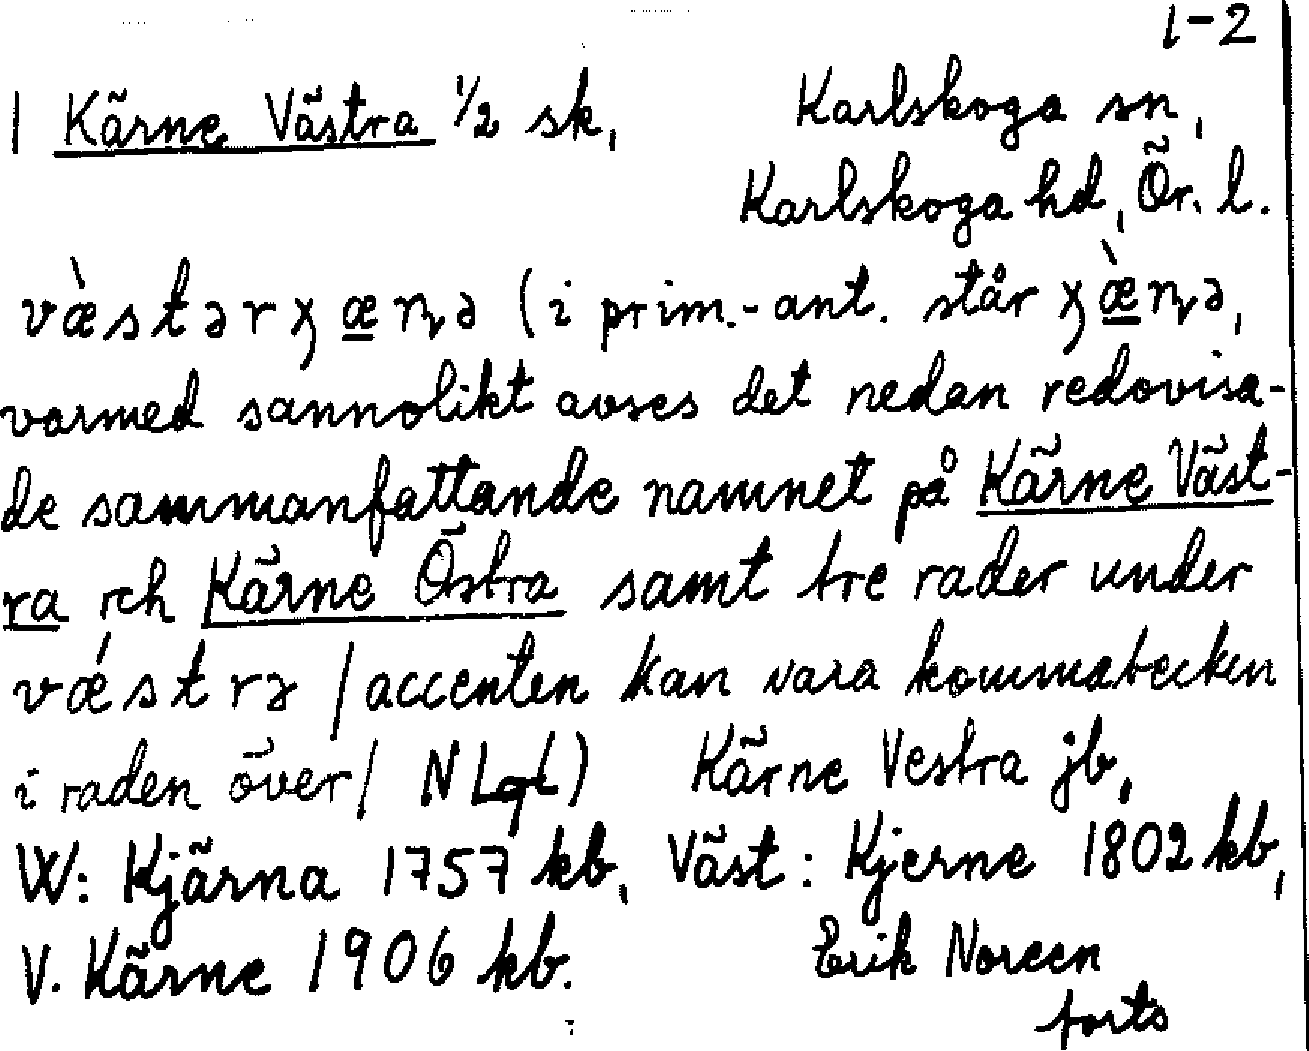 1-2
1 Kärne Västra 1/2 sk, Karlskoga sn,
Karlskoga hd, Ör. l.
væ̀stərχæɳə (i prim.-ant. står χæ̀ɳə,
varmed sannolikt avses det nedan redovisa-
de sammanfattande namnet på Kärne Väst-
ra och Kärne Östra samt tre rader under
vǽstrə /accenten kan vara kommatecken
i raden över/ NLqL) Kärne Vestra jb,
W: Kjärna 1757 kb, Väst: Kjerne 1802 kb,
V. Kärne 1906 kb. Erik Noreen
forts